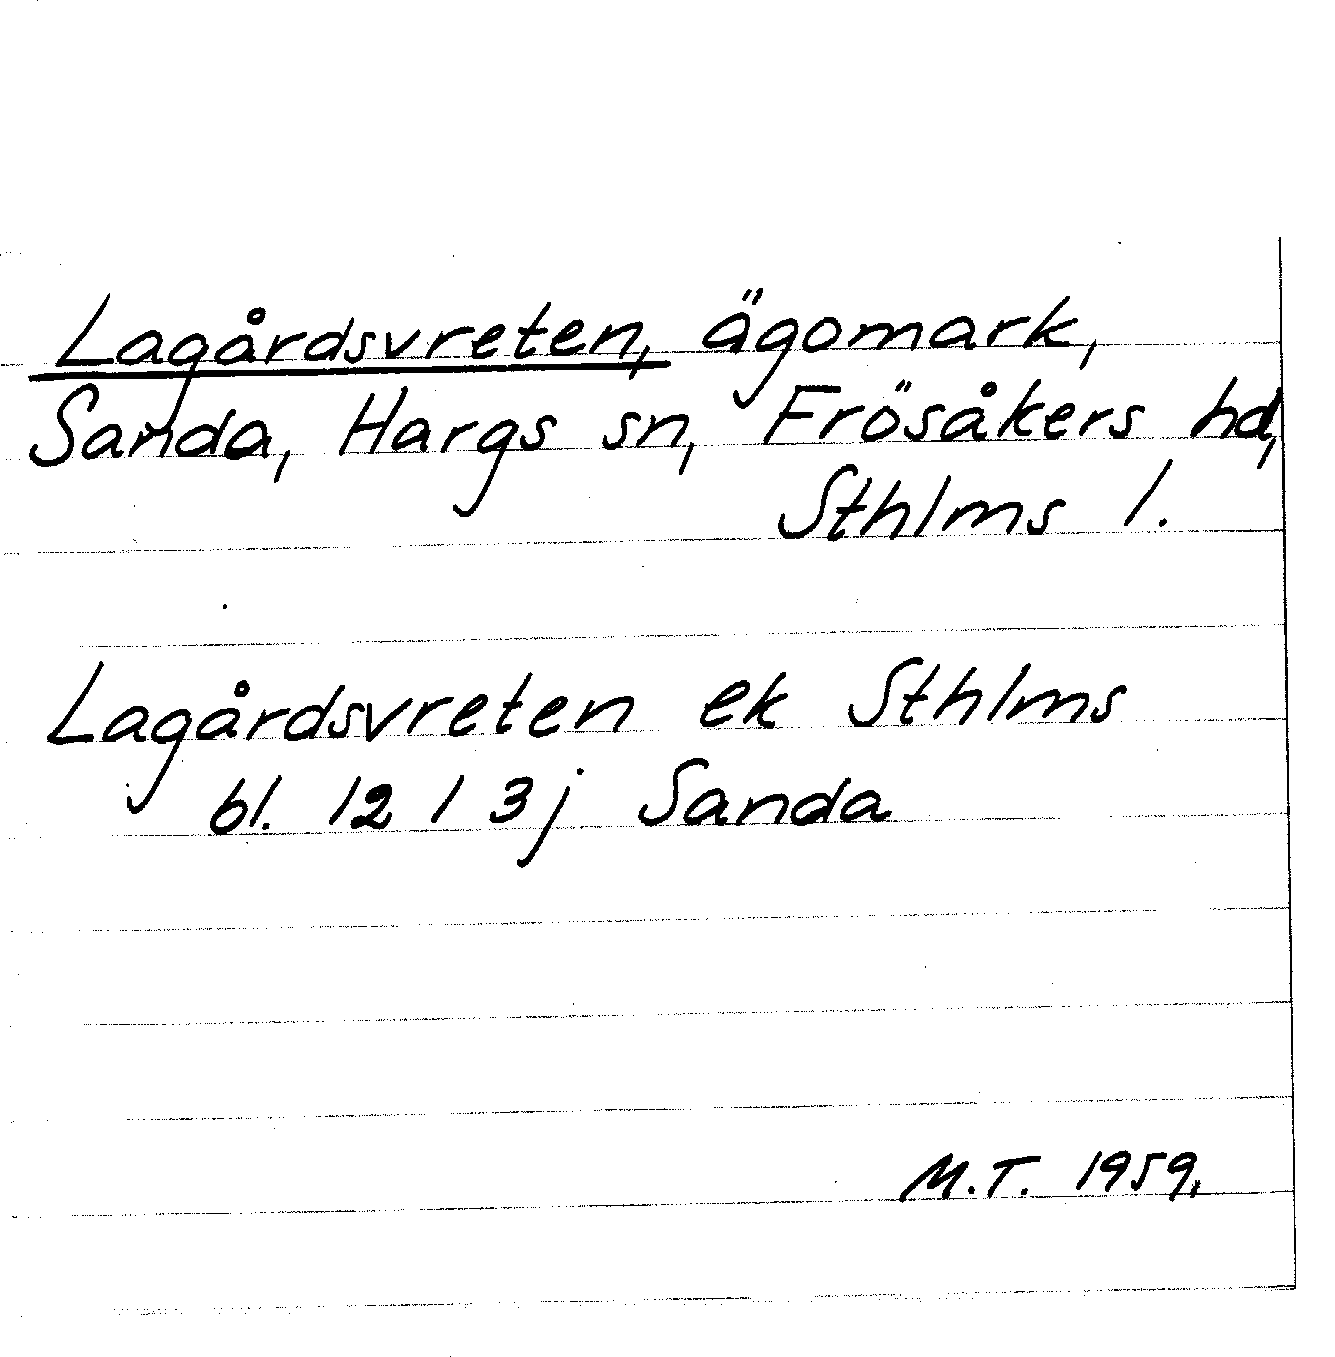 Lagårdsvreten, ägomark,
Sanda, Hargs sn, Frösåkers hd,
Sthlms l.
Lagårdsvreten ek Sthlms
bl. 12 I 3j Sanda
M.T. 1959.